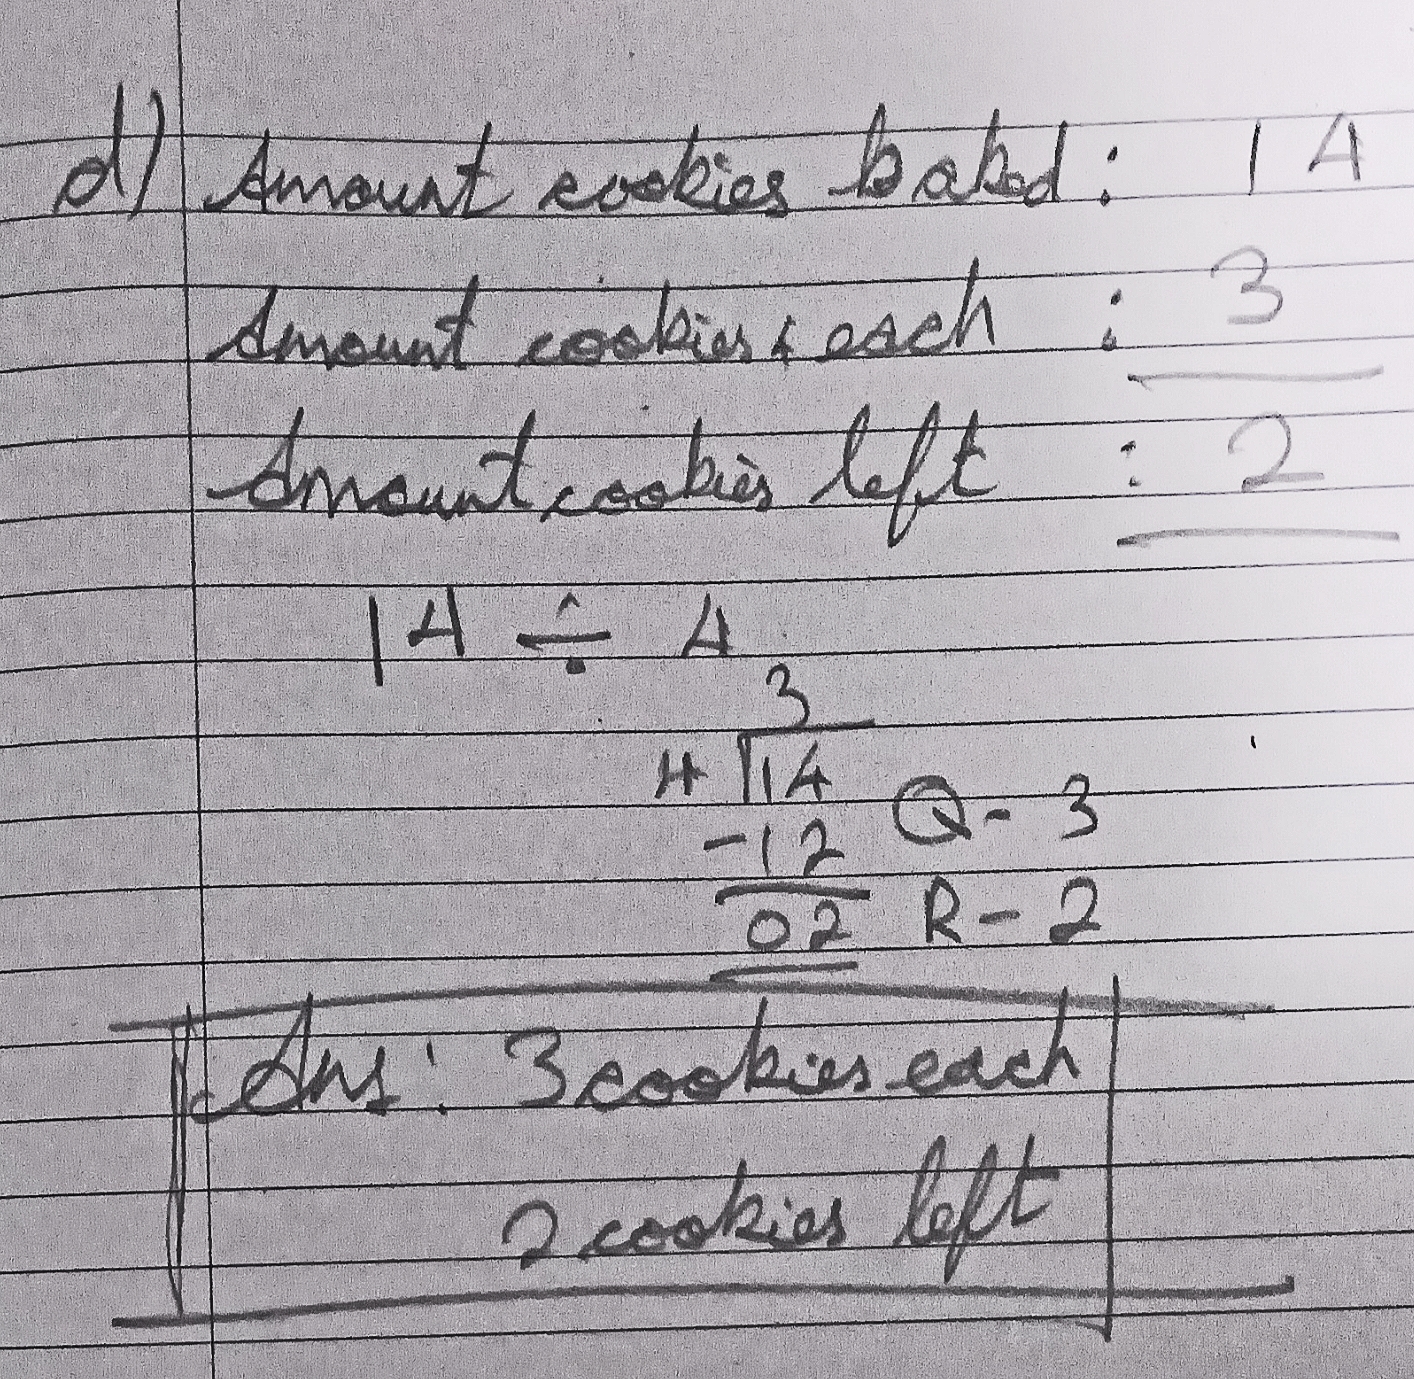 d) Amount cookies baked : 14
Amount cookies each : 3
Amount cookies left : 2
14 ÷ 4
3
4 14
-12 Q - 3
02 R - 2
Ans: 3 cookies each
2 cookies left